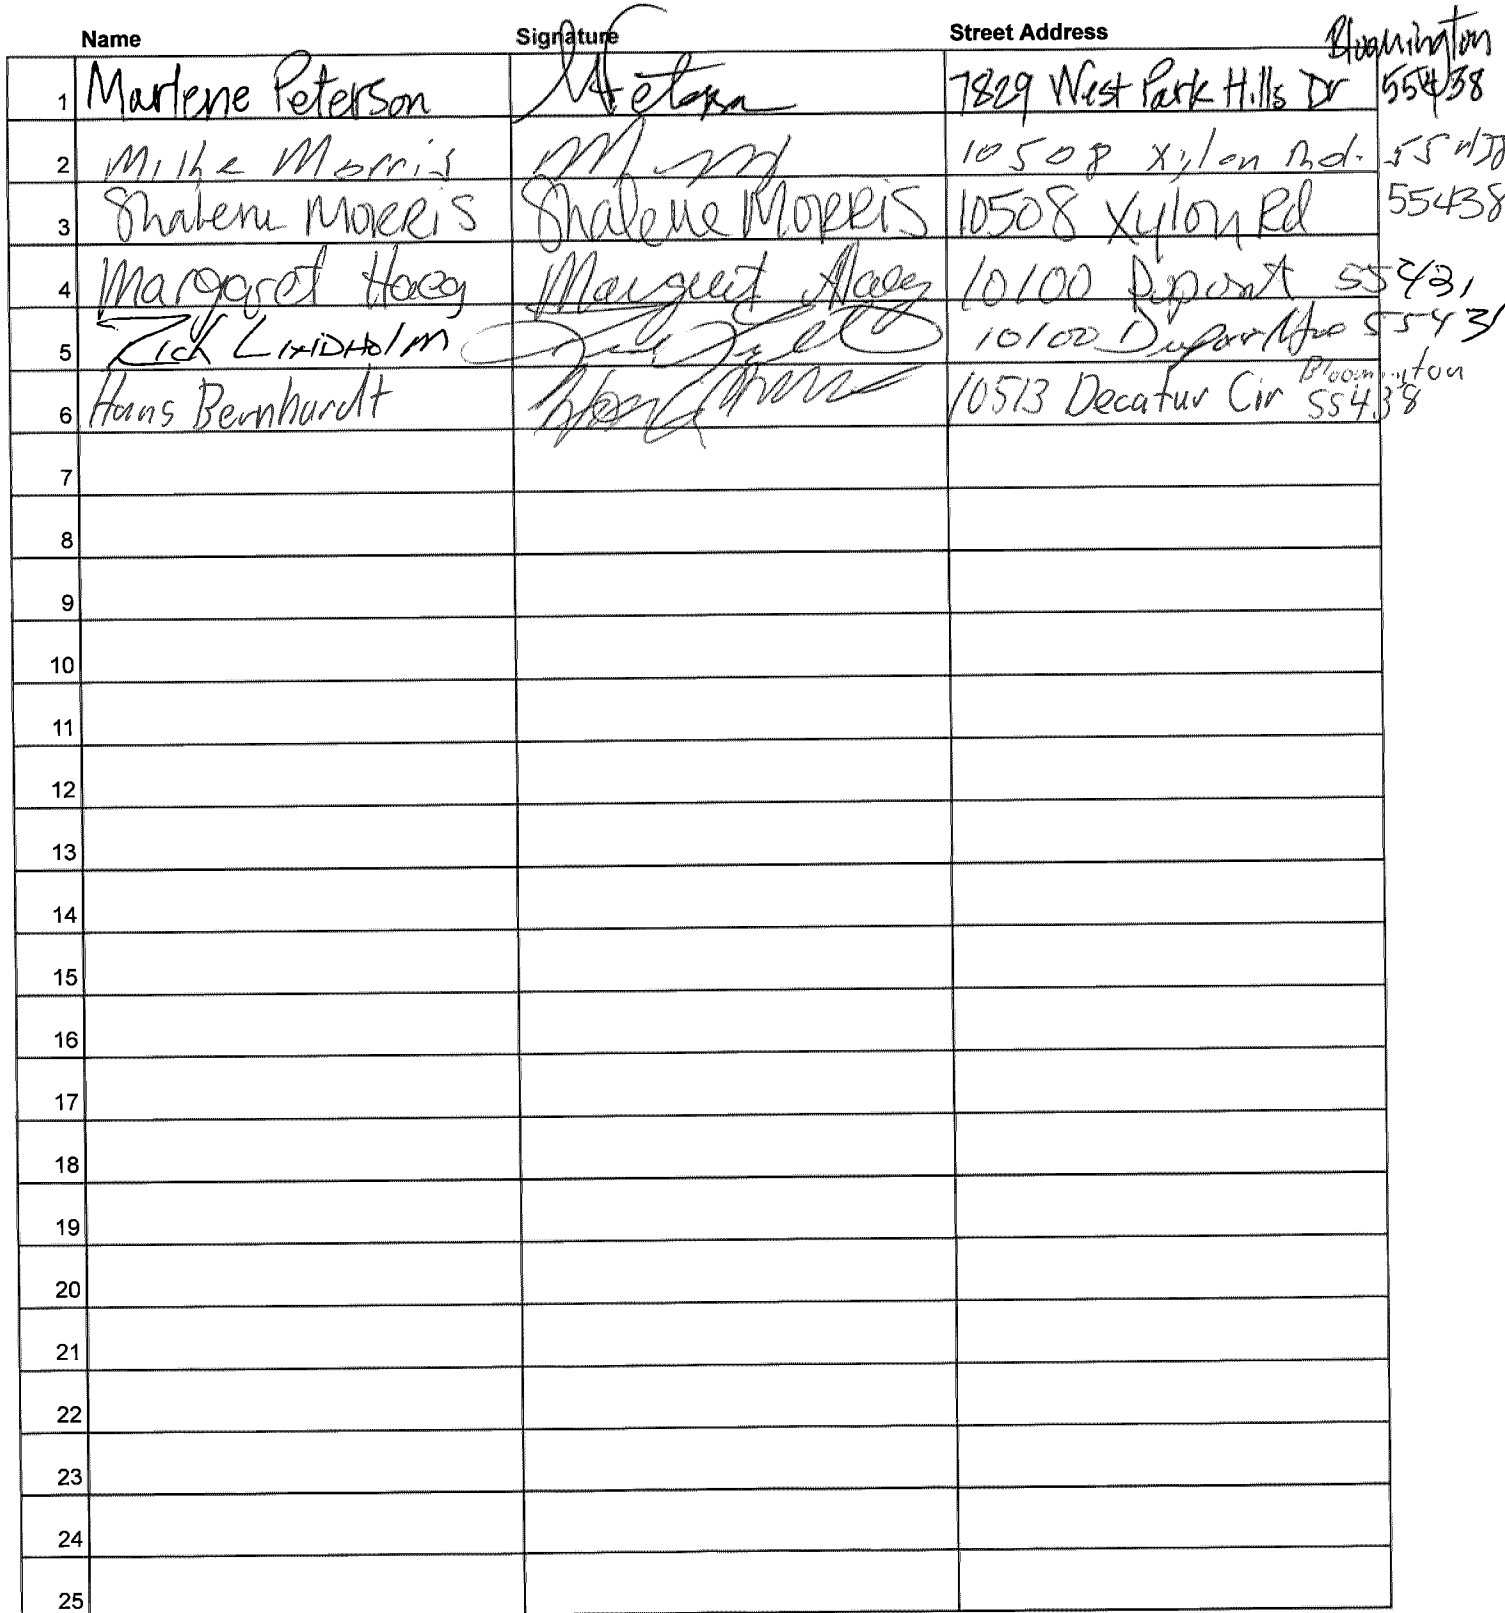 Name Signature Street Address Bloomington
1 Marlene Peterson 7829 West Park Hills Dr 55438
2 Mike Morris 10508 Xylon Rd. 55438
3 Shalene MORRIS Shalene MORRIS 10508 Xylon Rd 55438
4 Margaret Haeg Margaret Haeg 10100 Dupont 55431
5 Rick LINDHolM 10100 Dupont Ave 55431
6 Hans Bernhardt 10513 Decatur Cir Bloomington 55438
7
8
9
10
11
12
13
14
15
16
17
18
19
20
21
22
23
24
25